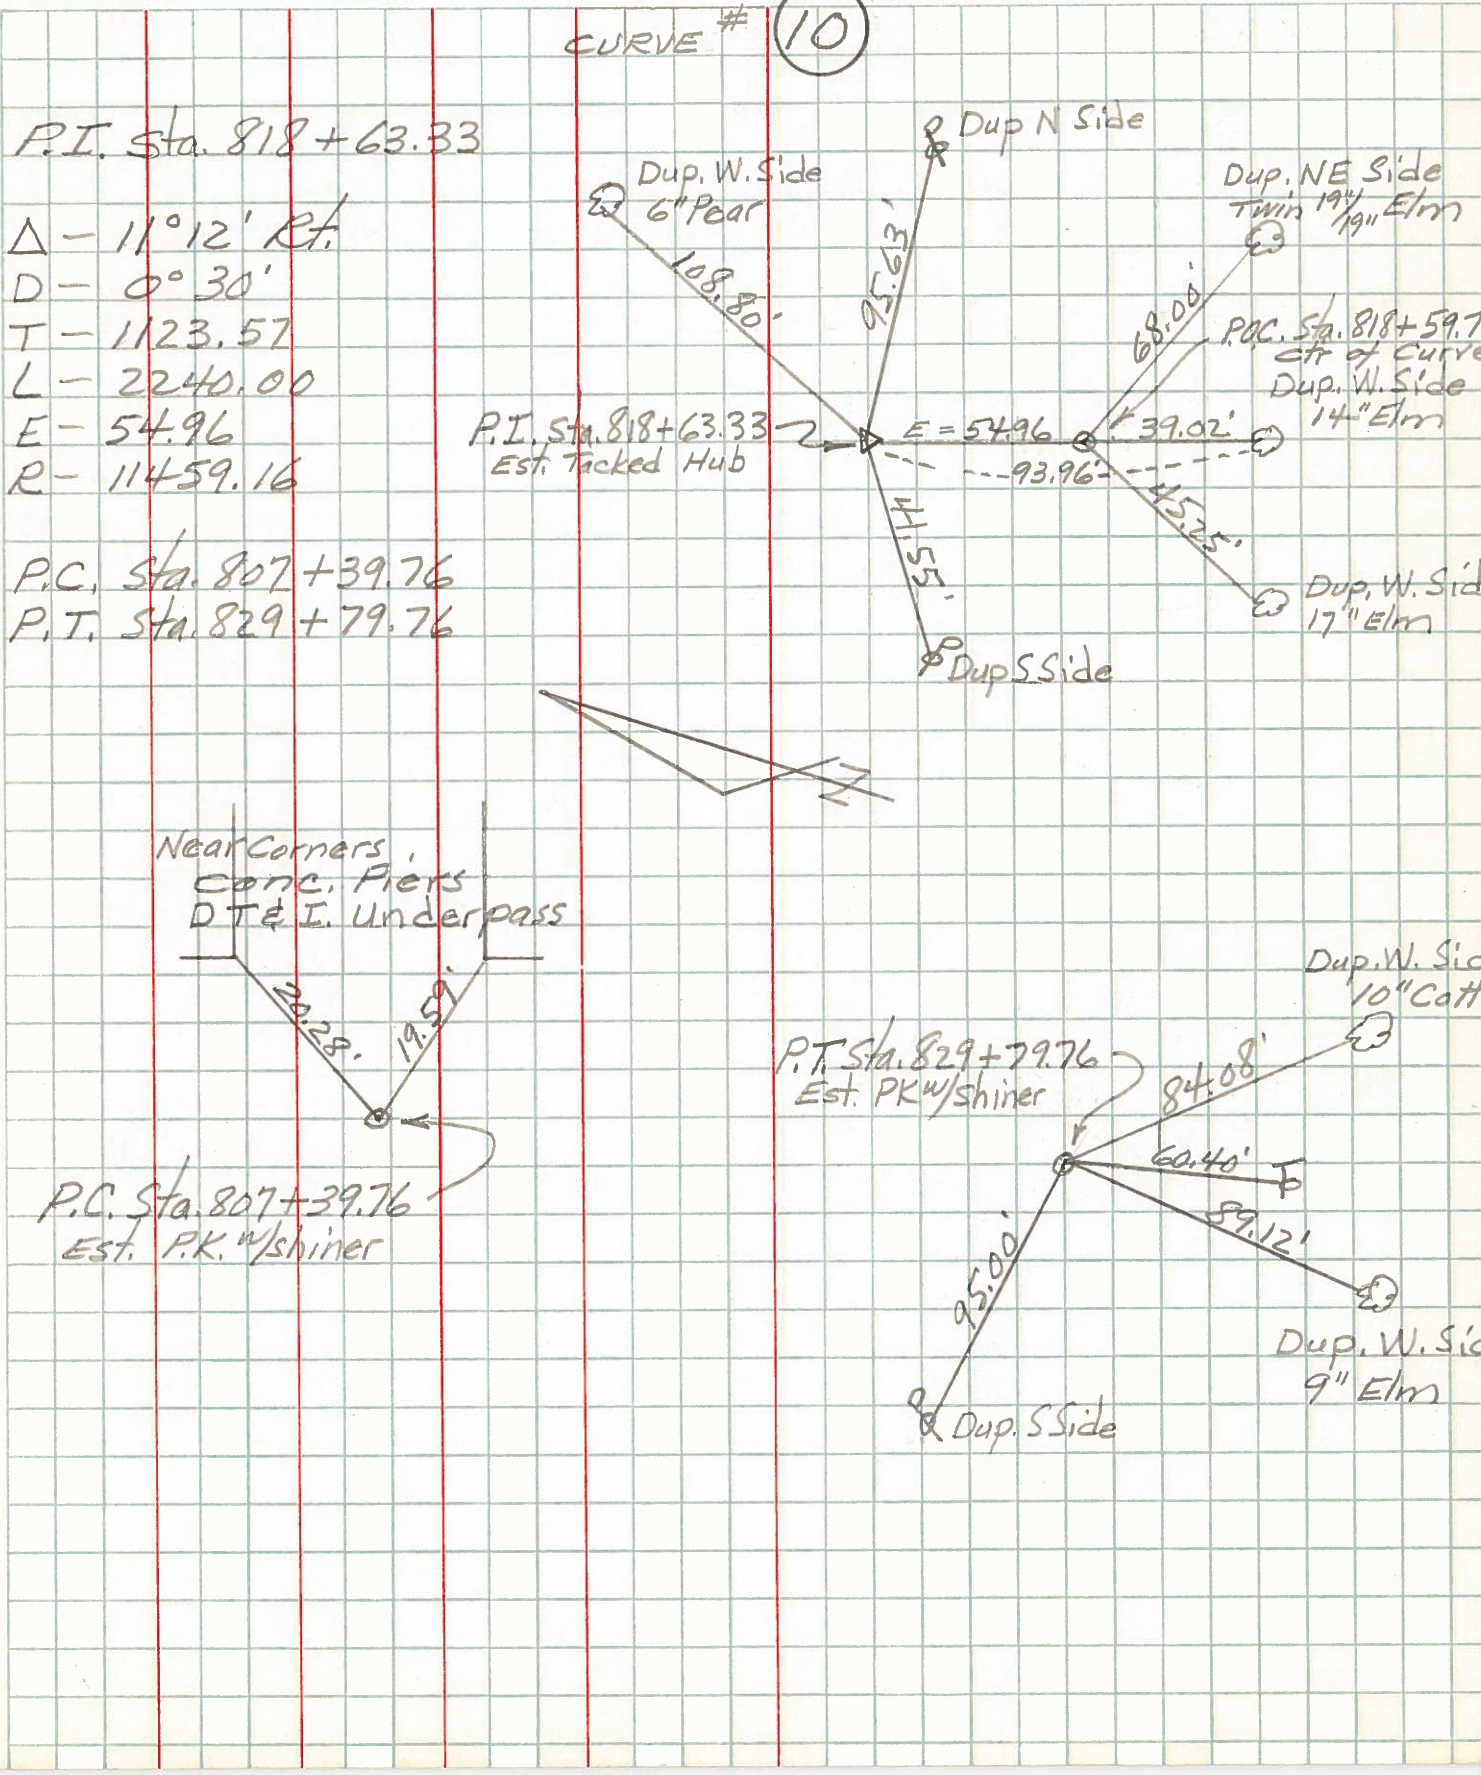 CURVE # 10
P.I. Sta. 818+63.33
Δ - 11°12' Rt.
D - 0°30'
T - 1123.57
L - 2240.00
E - 54.96
R - 11459.16
P.C. Sta. 807+39.76
P.T. Sta. 829+79.76
Dup N Side
Dup. W. Side
6" Pear
108.80'
95.63'
Dup. NE Side
Twin 19"/19" Elm
68.00'
P.O.C. Sta. 818+59.7
Ctr of Curve
Dup. W. Side
14" Elm
P.I. Sta. 818+63.33
Est. Tacked Hub
E = 54.96
39.02'
93.96'
41.55'
45.25'
Dup. W. Sid
17" Elm
Dup S Side
N
Near Corners
Conc. Piers
D T & I. Underpass
20.28'
19.59'
P.C. Sta. 807+39.76
Est. P.K. w/shiner
Dup. W. Sid
10" Cott
P.T. Sta. 829+79.76
Est. PK w/shiner
84.08'
60.40'
89.12'
95.00'
Dup. W. Sid
9" Elm
Dup. S Side